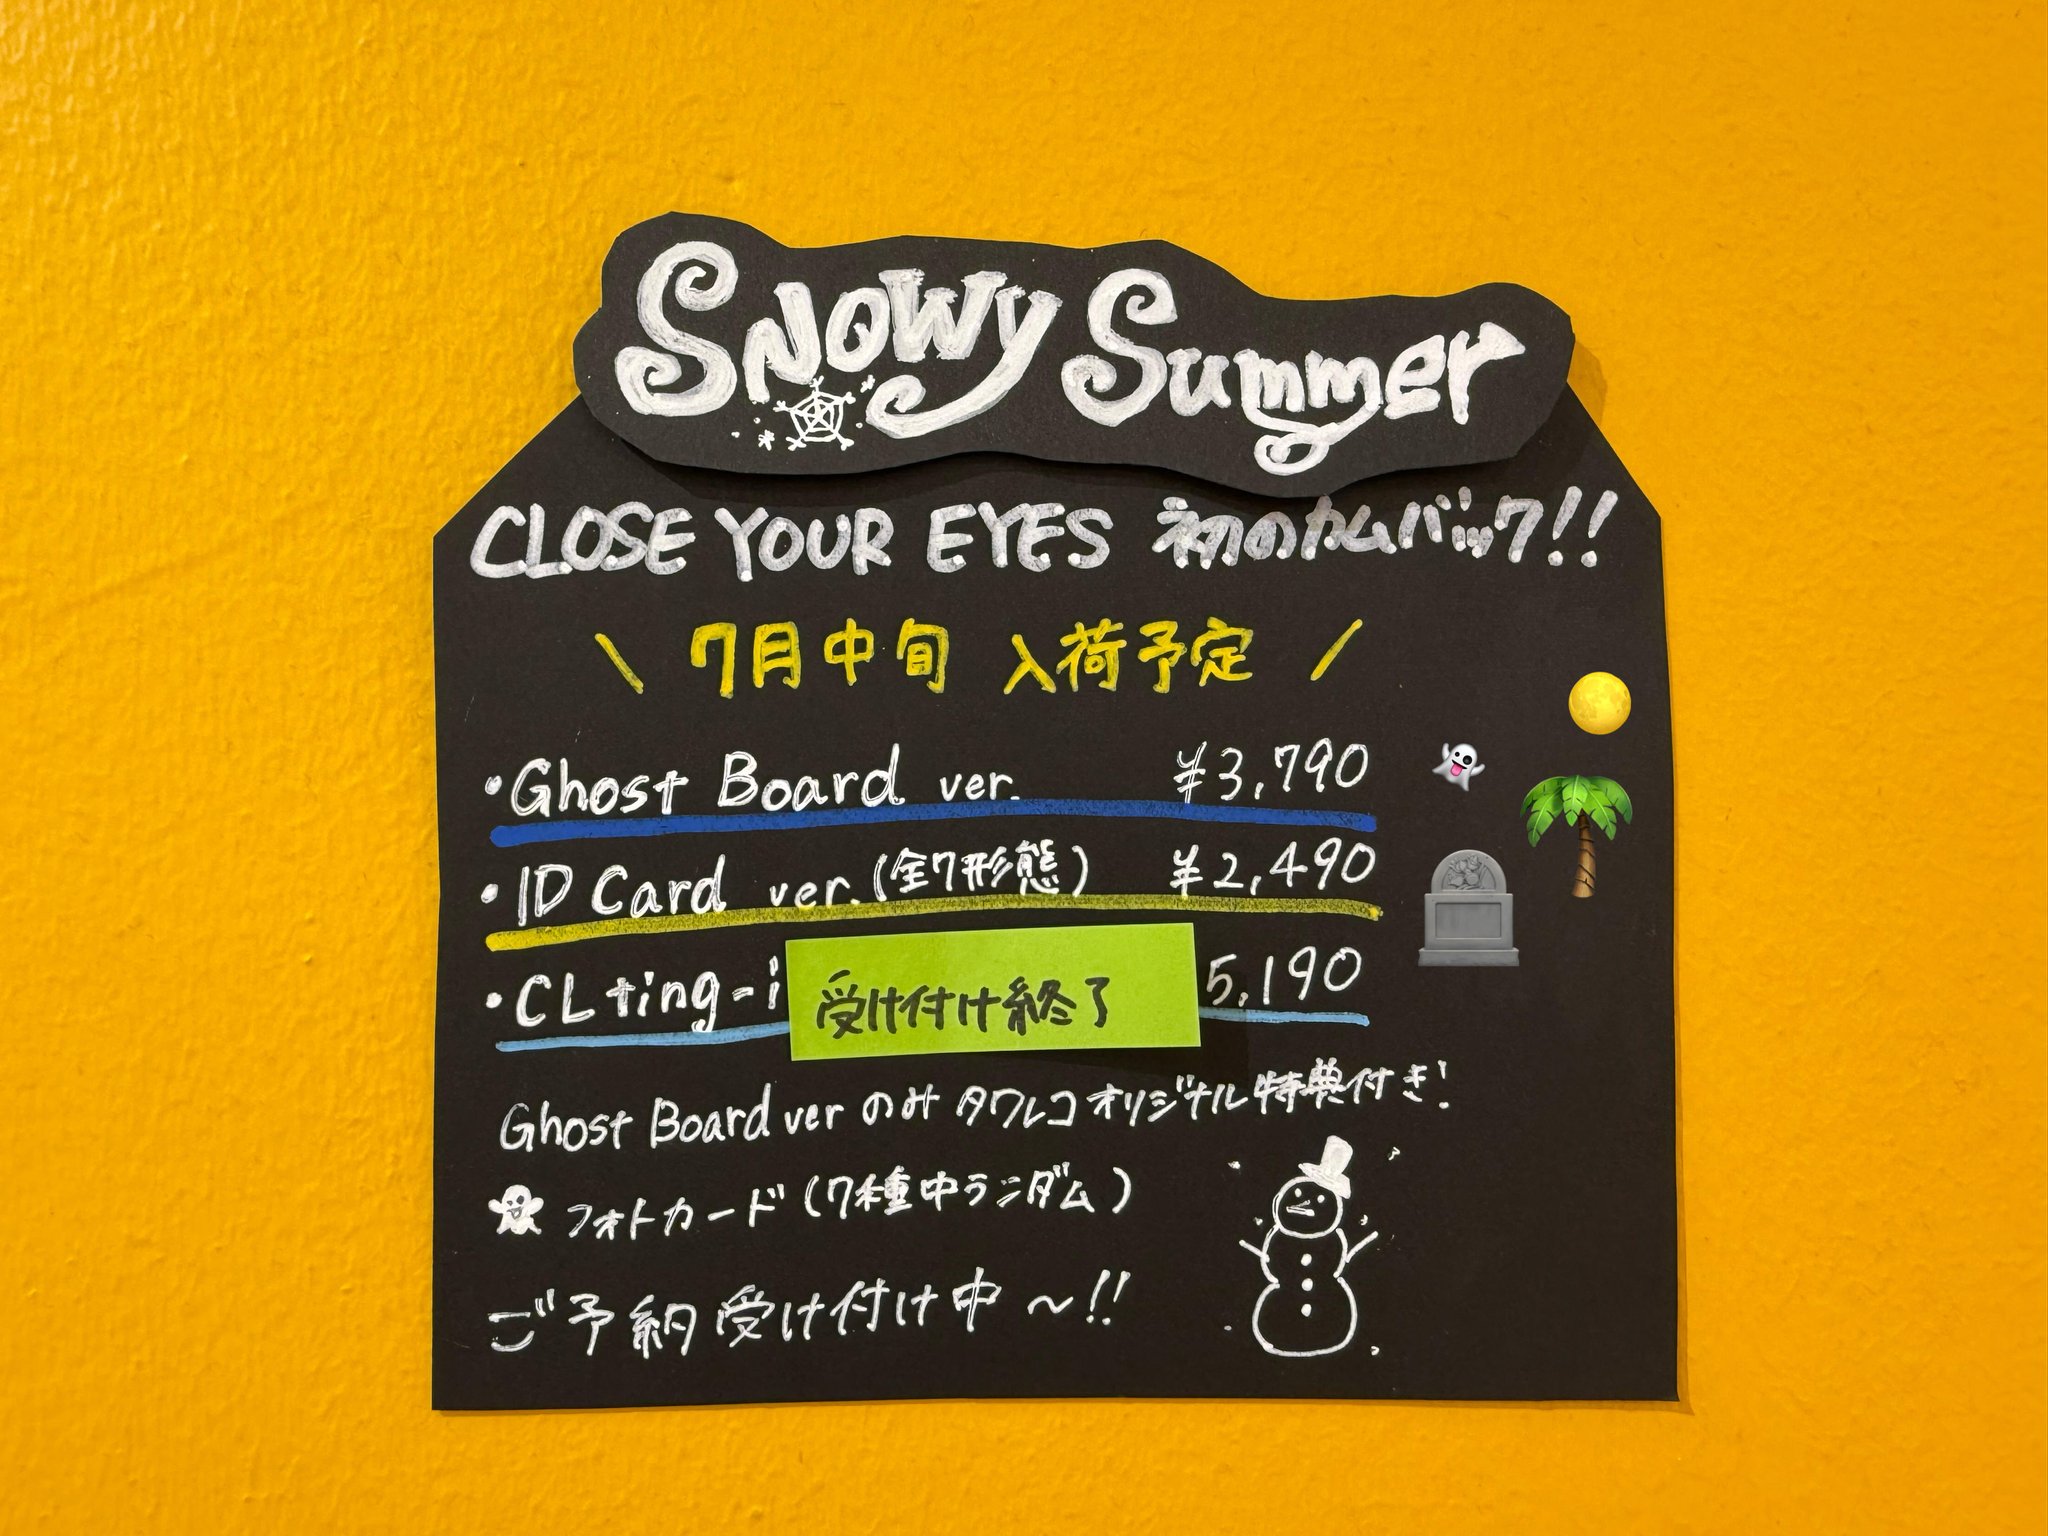 Snowy Summer
CLOSE YOUR EYES 初のカムバック!!
\ 7月中旬 入荷予定 /
・Ghost Board ver. ¥3,790
・ID Card ver.(全7形態) ¥2,490
・CLting-i 受け付け終了 5,190
Ghost Board ver のみ タワレコオリジナル特典付き!
フォトカード(7種中ランダム)
ご予約受け付け中〜!!